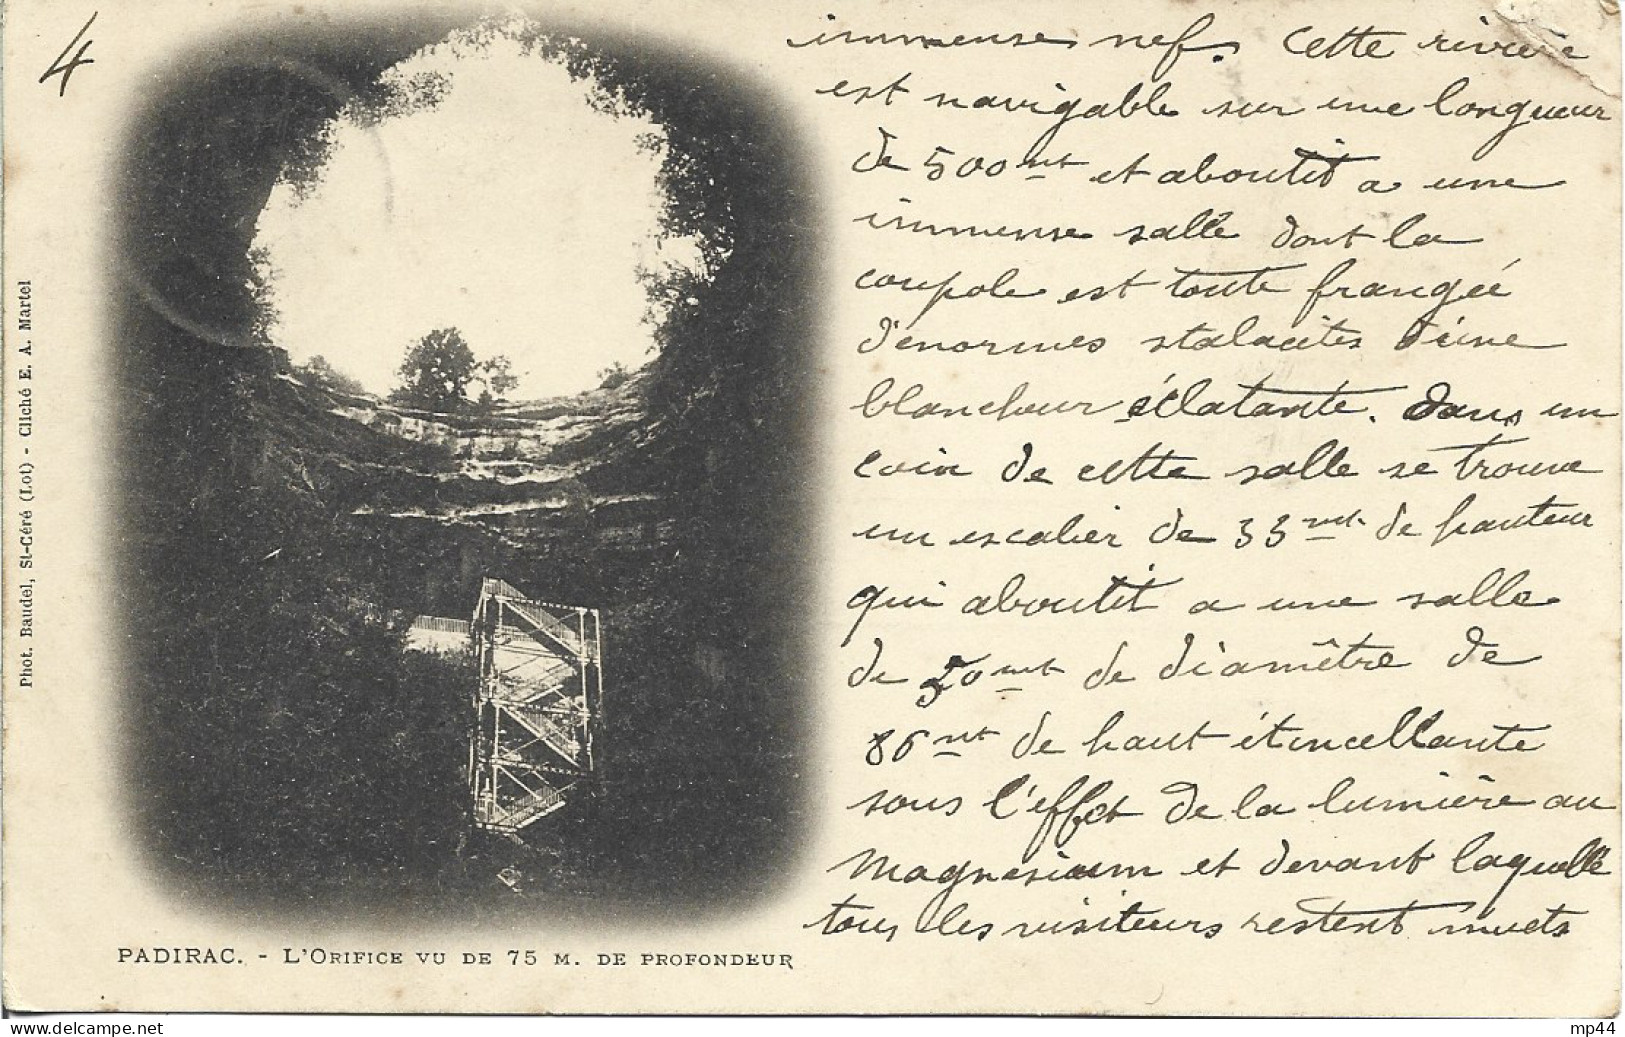 4
immense nef. Cette rivière
est navigable sur une longueur
de 500 mt et aboutit a une
immense salle dont la
coupole est toute frangée
d'enormes stalacites d'une
blancheur éclatante. dans un
coin de cette salle se trouve
un escalier de 33 mt de hauteur
qui aboutit a une salle
de 50 mt de diamêtre de
86 mt de haut étincellante
sous l'effet de la lumière au
magnesium et devant laquelle
tous les visiteurs restent muets
Phot. Baudel, St-Céré (Lot) - Cliché E. A. Martel
PADIRAC. - L'ORIFICE VU DE 75 M. DE PROFONDEUR
https://www.delcampe.net
mp44